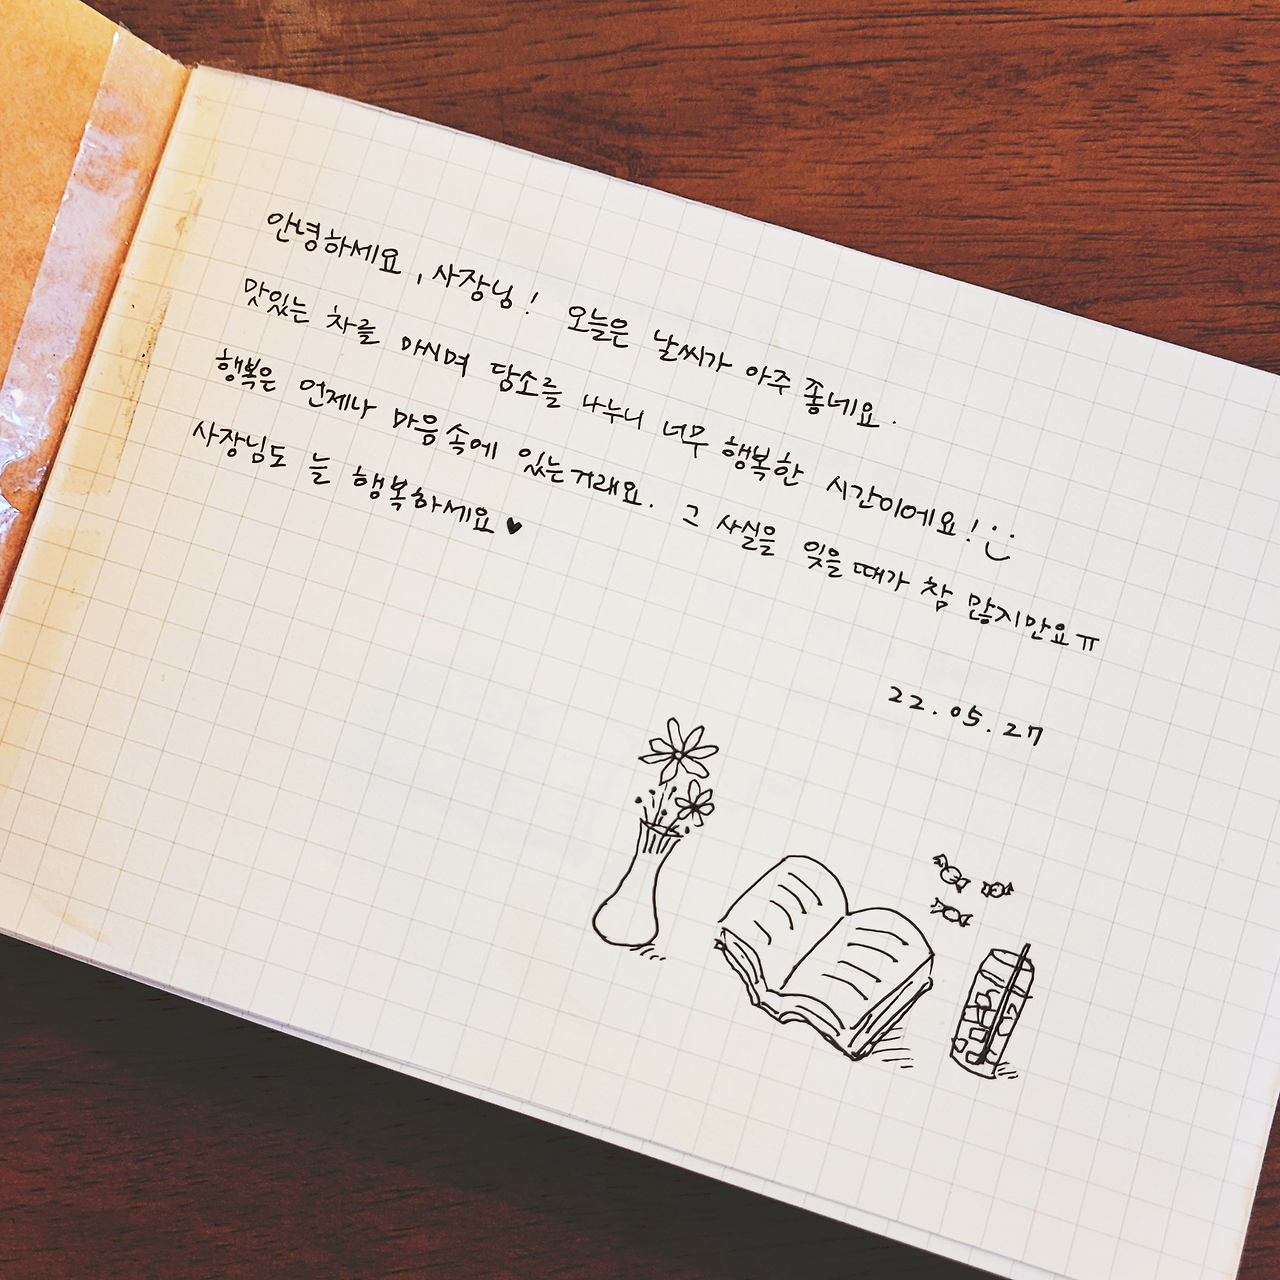 안녕하세요, 사장님! 오늘은 날씨가 아주 좋네요.
맛있는 차를 마시며 담소를 나누니 너무 행복한 시간이에요! :)
행복은 언제나 마음속에 있는거래요. 그 사실을 잊을 때가 참 많지만요ㅠ
사장님도 늘 행복하세요♥
22.05.27